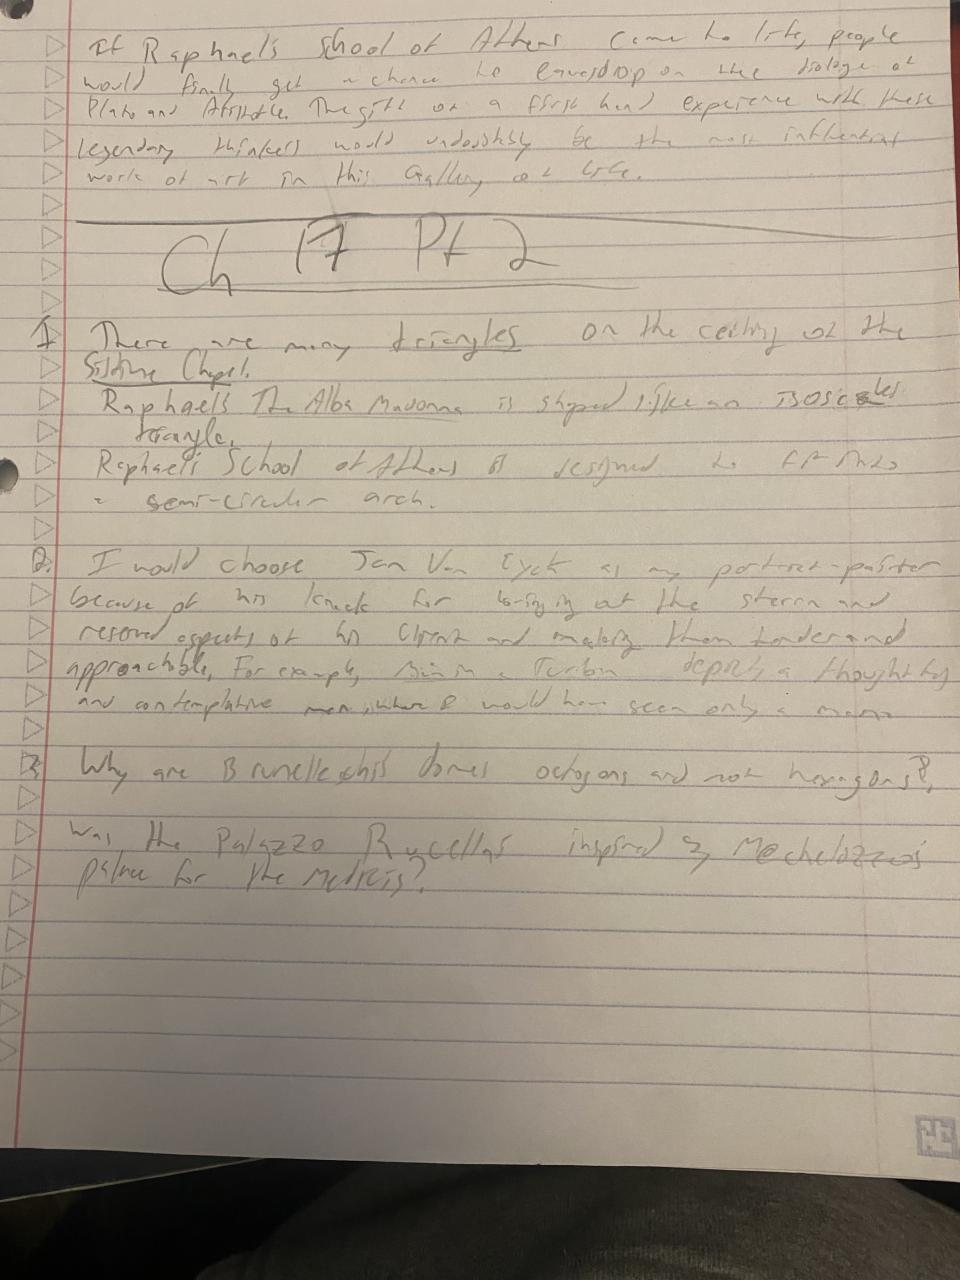 If Raphael's School of Athens came to life, people
would finally get a chance to eavesdrop on the dialoge of
Plato and Aristotle. The gift of a first hand experience with these
legendary thinkers would undoubtedly be the most influential
work of art in this Gallery of life.
Ch 17 Pt 2
1. There are many triangles on the ceiling of the
Sistine Chapel.
Raphael's The Alba Madonna is shaped like an isosceles
triangle.
Raphael's School of Athens is designed to fit into
a semi-circular arch.
2. I would choose Jan Van Eyck as my portrait-painter
because of his knack for looking at the stern and
reserved aspects of his client and making them tender and
approachable. For example, Man in a Turban depicts a thoughtful
and contemplative man, where I would have seen only a
3. Why are Brunelleschi's domes octogons and not hexagons?
Was the Palazzo Rucellai inspired by Mechelozzo's
palace for the Medicis?